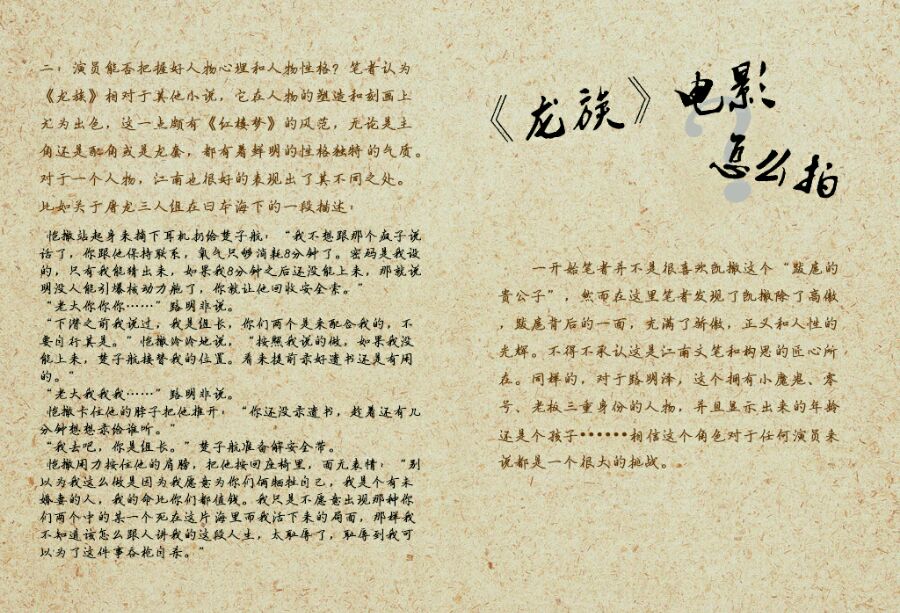 二：演员能否把握好人物心理和人物性格？笔者认为
《龙族》相对于其他小说，它在人物的塑造和刻画上
尤为出色，这一点颇有《红楼梦》的风范，无论是主
角还是配角或是龙套，都有着鲜明的性格独特的气质。
对于一个人物，江南也很好的表现出了其不同之处。
比如关于屠龙三人组在日本海下的一段描述：
恺撒站起身来摘下耳机扔给楚子航：“我不想跟那个疯子说
话了，你跟他保持联系，氧气只够消耗8分钟了。密码是我设
的，只有我能猜出来，如果我8分钟之后还没能上来，那就说
明没人能引爆核动力舱了，你就让他回收安全索。”
“老大你你你……”路明非说。
“下潜之前我说过，我是组长，你们两个是来配合我的，不
要自行其是。”恺撒冷冷地说，“按照我说的做，如果我没
能上来，楚子航接替我的位置。看来提前录好遗书还是有用
的。”
“老大我我我……”路明非说。
恺撒卡住他的脖子把他推开：“你还没录遗书，趁着还有几
分钟想想录给谁听。”
“我去吧，你是组长。”楚子航准备解安全带。
恺撒用力按住他的肩膀，把他按回座椅里，面无表情：“别
以为我这么做是因为我愿意为你们俩牺牲自己，我是个有未
婚妻的人，我的命比你们都值钱。我只是不愿意出现那种你
们两个中的某一个死在这片海里而我活下来的局面，那样我
不知道该怎么跟人讲我的这段人生，太耻辱了，耻辱到我可
以为了这件事吞枪自杀。”
《龙族》电影
怎么拍
？
一开始笔者并不是很喜欢凯撒这个“跋扈的
贵公子”，然而在这里笔者发现了凯撒除了高傲
，跋扈背后的一面，充满了骄傲，正义和人性的
光辉。不得不承认这是江南文笔和构思的匠心所
在。同样的，对于路明泽，这个拥有小魔鬼、零
号、老板三重身份的人物，并且显示出来的年龄
还是个孩子······相信这个角色对于任何演员来
说都是一个很大的挑战。